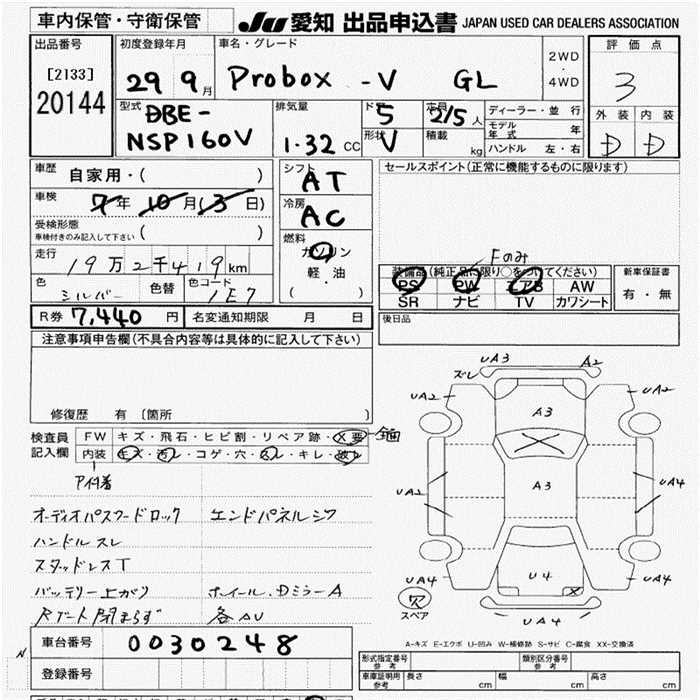 車内保管・守衛保管 JU 愛知 出品申込書 JAPAN USED CAR DEALERS ASSOCIATION
出品番号 初度登録年月 車名・グレード 2WD ・ 4WD 評価点
[2133] 29 9月 Probox -V GL 3
20144
型式 DBE- 排気量 ド 5 定員 2/5人 ディーラー・並行 外装 内装
NSP160V 1.32 CC 形状 V 積載 kg モデル年式 年 D D
ハンドル 左・右
車歴 自家用・( ) シフト AT セールスポイント(正常に機能するものに限ります)
車検 7年 10月(3日) 冷房 AC
受検形態 ( )
車検付きのみ記入して下さい
燃料 ガソリン
軽・油
( )
走行 19万2千419km
色 シルバー 色替 色コード 1E7
Fのみ
装備品(純正品に限り○をつけてください) 新車保証書
PS PW エアB AW 有・無
SR ナビ TV カワシート
R券 7,440円 名変通知期限 月 日 後日品
注意事項申告欄(不具合内容等は具体的に記入して下さい)
修復歴 有 [箇所 ]
検査員 FW キズ・飛石・ヒビ割・リペア跡・X要
記入欄 内装 キズ・汚レ・コゲ・穴・スレ・キレ・破レ
オーディオパスワードロック エンドパネルシワ
ハンドルスレ
スタッドレスT
バッテリー上がり ホイール、DミラーA
Rゲート閉まらず 各AU
UA3 A2
ズレ
UA2 UA2
A3
UA2 A3 UA4
UA4 U4 UA4
穴
スペア UA4
A-キズ E-エクボ U-凹み W-補修跡 S-サビ C-腐食 XX-交換済
N 車台番号 0030248
登録番号
形式指定番号 参考 類別区分番号 参考
車庫証明用 参考 長さ cm 幅 cm 高さ cm